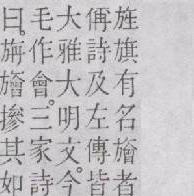 旌旗有名旝者
偁詩及左傳皆
大雅大明文。今
毛作會。三家詩
曰。旝摻其如